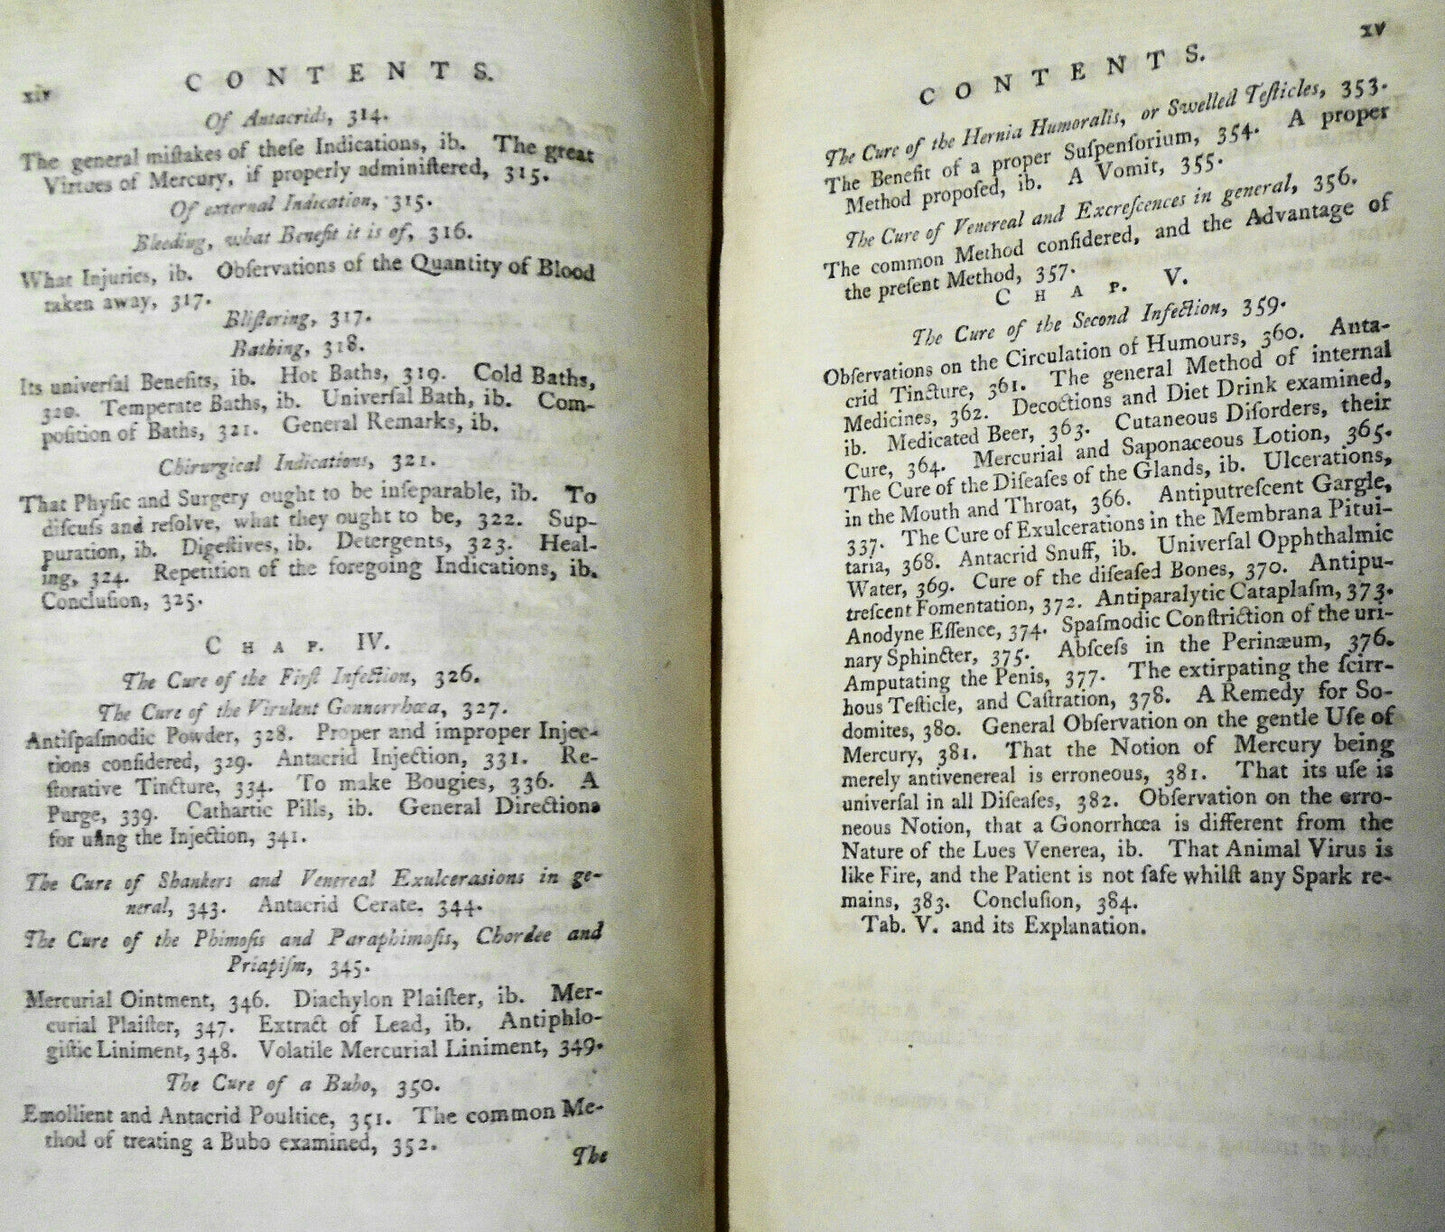 xiv
CONTENTS.
Of Antacrids, 314.
The general miſtakes of theſe Indications, ib. The great
Virtues of Mercury, if properly adminiſtered, 315.
Of external Indication, 315.
Bleeding, what Benefit it is of, 316.
What Injuries, ib. Obſervations of the Quantity of Blood
taken away, 317.
Bliſtering, 317.
Bathing, 318.
Its univerſal Benefits, ib. Hot Baths, 319. Cold Baths,
320. Temperate Baths, ib. Univerſal Bath, ib. Com-
poſition of Baths, 321. General Remarks, ib.
Chirurgical Indications, 321.
That Phyſic and Surgery ought to be inſeparable, ib. To
diſcuſs and reſolve, what they ought to be, 322. Sup-
puration, ib. Digeſtives, ib. Detergents, 323. Heal-
ing, 324. Repetition of the foregoing Indications, ib.
Concluſion, 325.
CHAP. IV.
The Cure of the Firſt Infection, 326.
The Cure of the Virulent Gonnorrhœa, 327.
Antiſpaſmodic Powder, 328. Proper and improper Injec-
tions conſidered, 329. Antacrid Injection, 331. Re-
ſtorative Tincture, 334. To make Bougies, 336. A
Purge, 339. Cathartic Pills, ib. General Directions
for uſing the Injection, 341.
The Cure of Shankers and Venereal Exulcerasions in ge-
neral, 343. Antacrid Cerate. 344.
The Cure of the Phimoſis and Paraphimoſis, Chordee and
Priapiſm, 345.
Mercurial Ointment, 346. Diachylon Plaiſter, ib. Mer-
curial Plaiſter, 347. Extract of Lead, ib. Antiphlo-
giſtic Liniment, 348. Volatile Mercurial Liniment, 349.
The Cure of a Bubo, 350.
Emollient and Antacrid Poultice, 351. The common Me-
thod of treating a Bubo examined, 352.
The
xv
CONTENTS.
The Cure of the Hernia Humoralis, or Swelled Teſticles, 353.
The Benefit of a proper Suſpenſorium, 354. A proper
Method propoſed, ib. A Vomit, 355.
The Cure of Venereal and Excreſcences in general, 356.
The common Method conſidered, and the Advantage of
the preſent Method, 357.
CHAP. V.
The Cure of the Second Infection, 359.
Obſervations on the Circulation of Humours, 360. Anta-
crid Tincture, 361. The general Method of internal
Medicines, 362. Decoctions and Diet Drink examined,
ib. Medicated Beer, 363. Cutaneous Diſorders, their
Cure, 364. Mercurial and Saponaceous Lotion, 365.
The Cure of the Diſeaſes of the Glands, ib. Ulcerations,
in the Mouth and Throat, 366. Antiputreſcent Gargle,
337. The Cure of Exulcerations in the Membrana Pitui-
taria, 368. Antacrid Snuff, ib. Univerſal Opphthalmic
Water, 369. Cure of the diſeaſed Bones, 370. Antipu-
treſcent Fomentation, 372. Antiparalytic Cataplaſm, 373.
Anodyne Eſſence, 374. Spaſmodic Conſtriction of the uri-
nary Sphincter, 375. Abſceſs in the Perinæum, 376.
Amputating the Penis, 377. The extirpating the ſcirr-
hous Teſticle, and Caſtration, 378. A Remedy for So-
domites, 380. General Obſervation on the gentle Uſe of
Mercury, 381. That the Notion of Mercury being
merely antivenereal is erroneous, 381. That its uſe is
univerſal in all Diſeaſes, 382. Obſervation on the erro-
neous Notion, that a Gonorrhœa is different from the
Nature of the Lues Venerea, ib. That Animal Virus is
like Fire, and the Patient is not ſafe whilſt any Spark re-
mains, 383. Concluſion, 384.
Tab. V. and its Explanation.